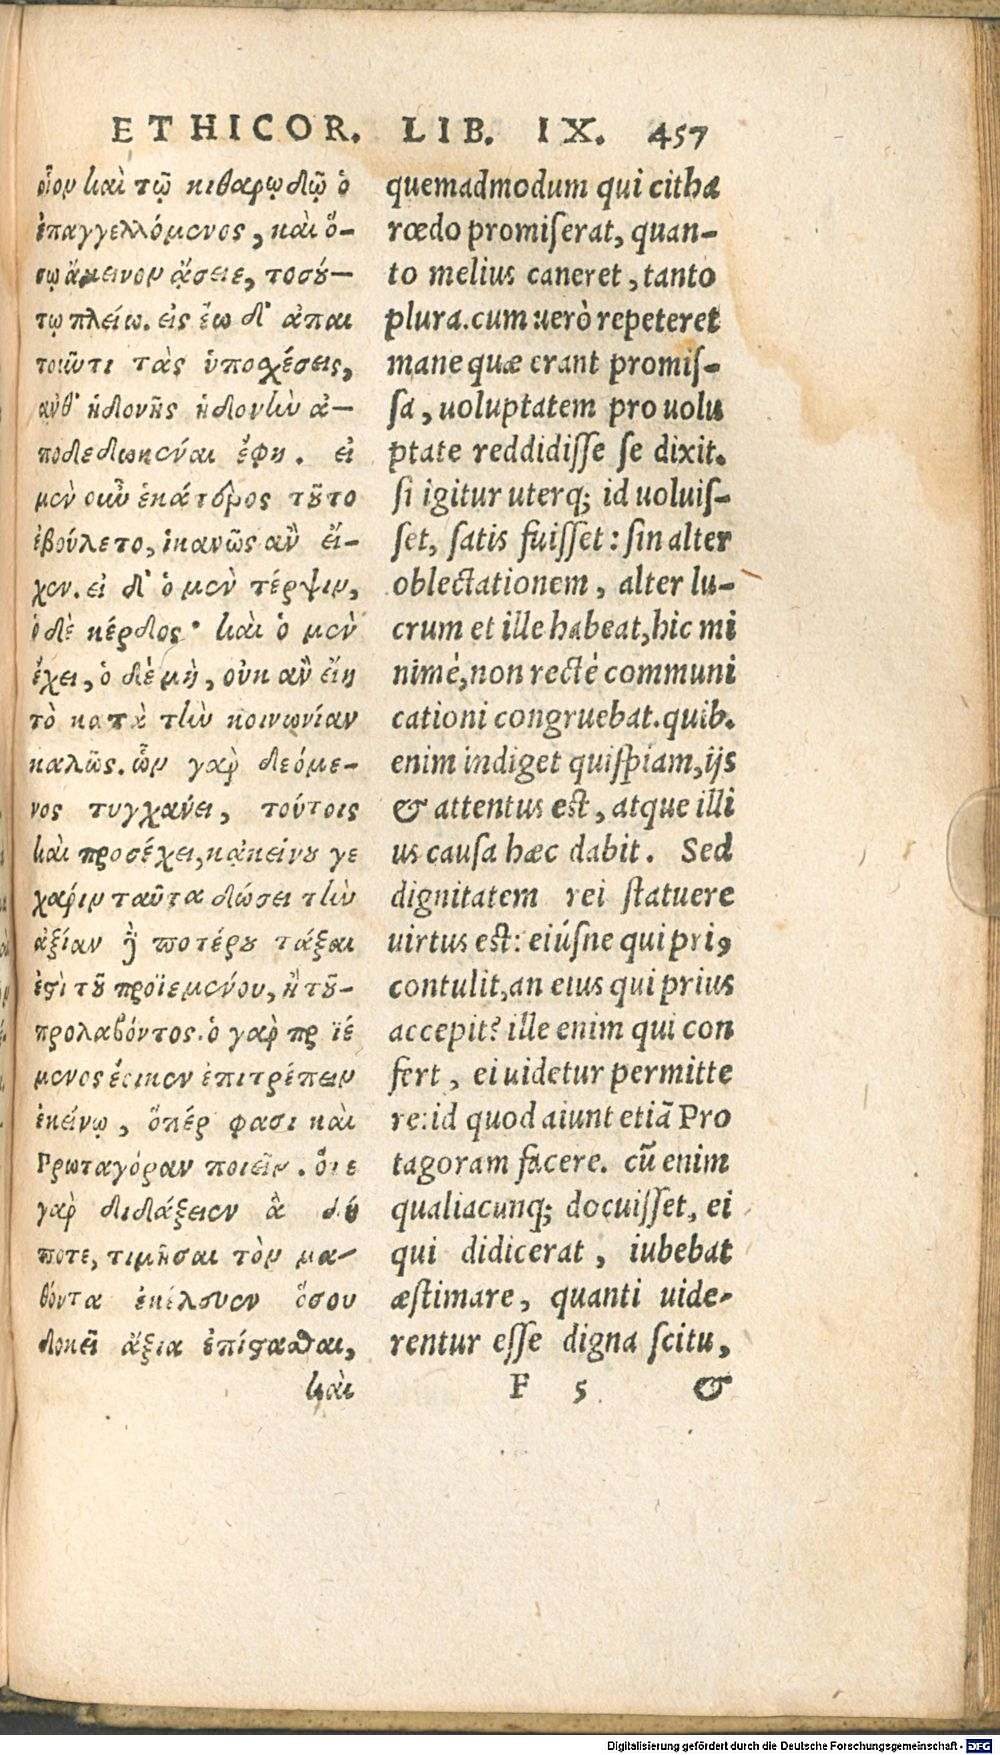 ETHICOR. LIB. IX. 457
οἷον καὶ τῷ κιθαρῳδῷ ὁ
ἐπαγγελλόμενος, καὶ ὅ-
σῳ ἄμεινον ᾄσειε, τοσού-
τῳ πλείω. εἰς ἕω δ' ἀπαι
τοιῶτι τὰς ὑποσχέσεις,
ἀνθ' ἡδονῆς ἡδονὴν ἀ-
ποδεδωκέναι ἔφη. εἰ
μὲν οὖν ἑκάτερος τοῦτο
ἐβούλετο, ἱκανῶς ἂν εἶ-
χεν. εἰ δ' ὁ μὲν τέρψιν,
ὁ δὲ κέρδος· καὶ ὁ μὲν
ἔχει, ὁ δὲ μὴ, οὐκ ἂν εἴη
τὸ κατὰ τὴν κοινωνίαν
καλῶς. ὧν γὰρ δεόμε-
νος τυγχάνει, τούτοις
καὶ προσέχει, κἀκείνου γε
χάριν ταῦτα δώσει τὴν
ἀξίαν ἢ ποτέρου τάξαι
ἐστὶ τοῦ προϊεμένου, ἢ τοῦ-
προλαβόντος. ὁ γὰρ προϊέ
μενος ἔοικεν ἐπιτρέπειν
ἐκείνῳ, ὅπέρ φασι καὶ
Πρωταγόραν ποιεῖν. ὅτε
γὰρ διδάξειεν ἃ δή
ποτε, τιμῆσαι τὸν μα-
θόντα ἐκέλευεν ὅσου
δοκεῖ ἄξια ἐπίστασθαι,
καὶ
quemadmodum qui citha
rœdo promiserat, quan-
to melius caneret, tanto
plura. cum uerò repeteret
mane quæ erant promis-
sa, uoluptatem pro uolu
ptate reddidisse se dixit.
si igitur uterq; id uoluis-
set, satis fuisset: sin alter
oblectationem, alter lu-
crum et ille habeat, hic mi
nimé, non recté communi
cationi congruebat. quib.
enim indiget quispiam, ijs
& attentus est, atque illi
us causa hæc dabit. Sed
dignitatem rei statuere
uirtus est: eiúsne qui pri9
contulit, an eius qui prius
accepit? ille enim qui con
fert, ei uidetur permitte
re: id quod aiunt etiã Pro
tagoram facere. cũ enim
qualiacunq; docuisset, ei
qui didicerat, iubebat
æstimare, quanti uide-
rentur esse digna scitu,
F 5 &
Digitalisierung gefördert durch die Deutsche Forschungsgemeinschaft - DFG